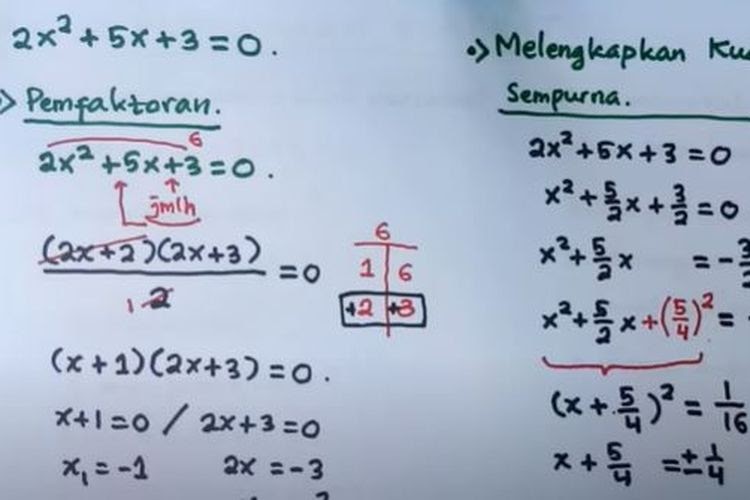 2x² + 5x + 3 = 0.
Pemfaktoran.
6
2x² + 5x + 3 = 0.
jmlh
(2x+2)(2x+3) = 0
1 2
6
1 6
+2 +3
(x+1)(2x+3) = 0.
x+1 = 0 / 2x+3 = 0
x₁ = -1 2x = -3
•> Melengkapkan
Sempurna.
2x² + 5x + 3 = 0
x² + 5/2 x + 3/2 = 0
x² + 5/2 x = - 3/2
x² + 5/2 x + (5/4)² =
(x + 5/4)² = 1/16
x + 5/4 = ± 1/4